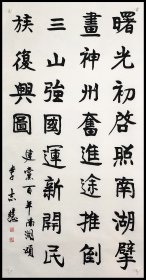 曙光初啓照南湖擘
畫神州奮進途推倒
三山強國運新開民
族復興圖
建黨百年南湖頌
李志慧